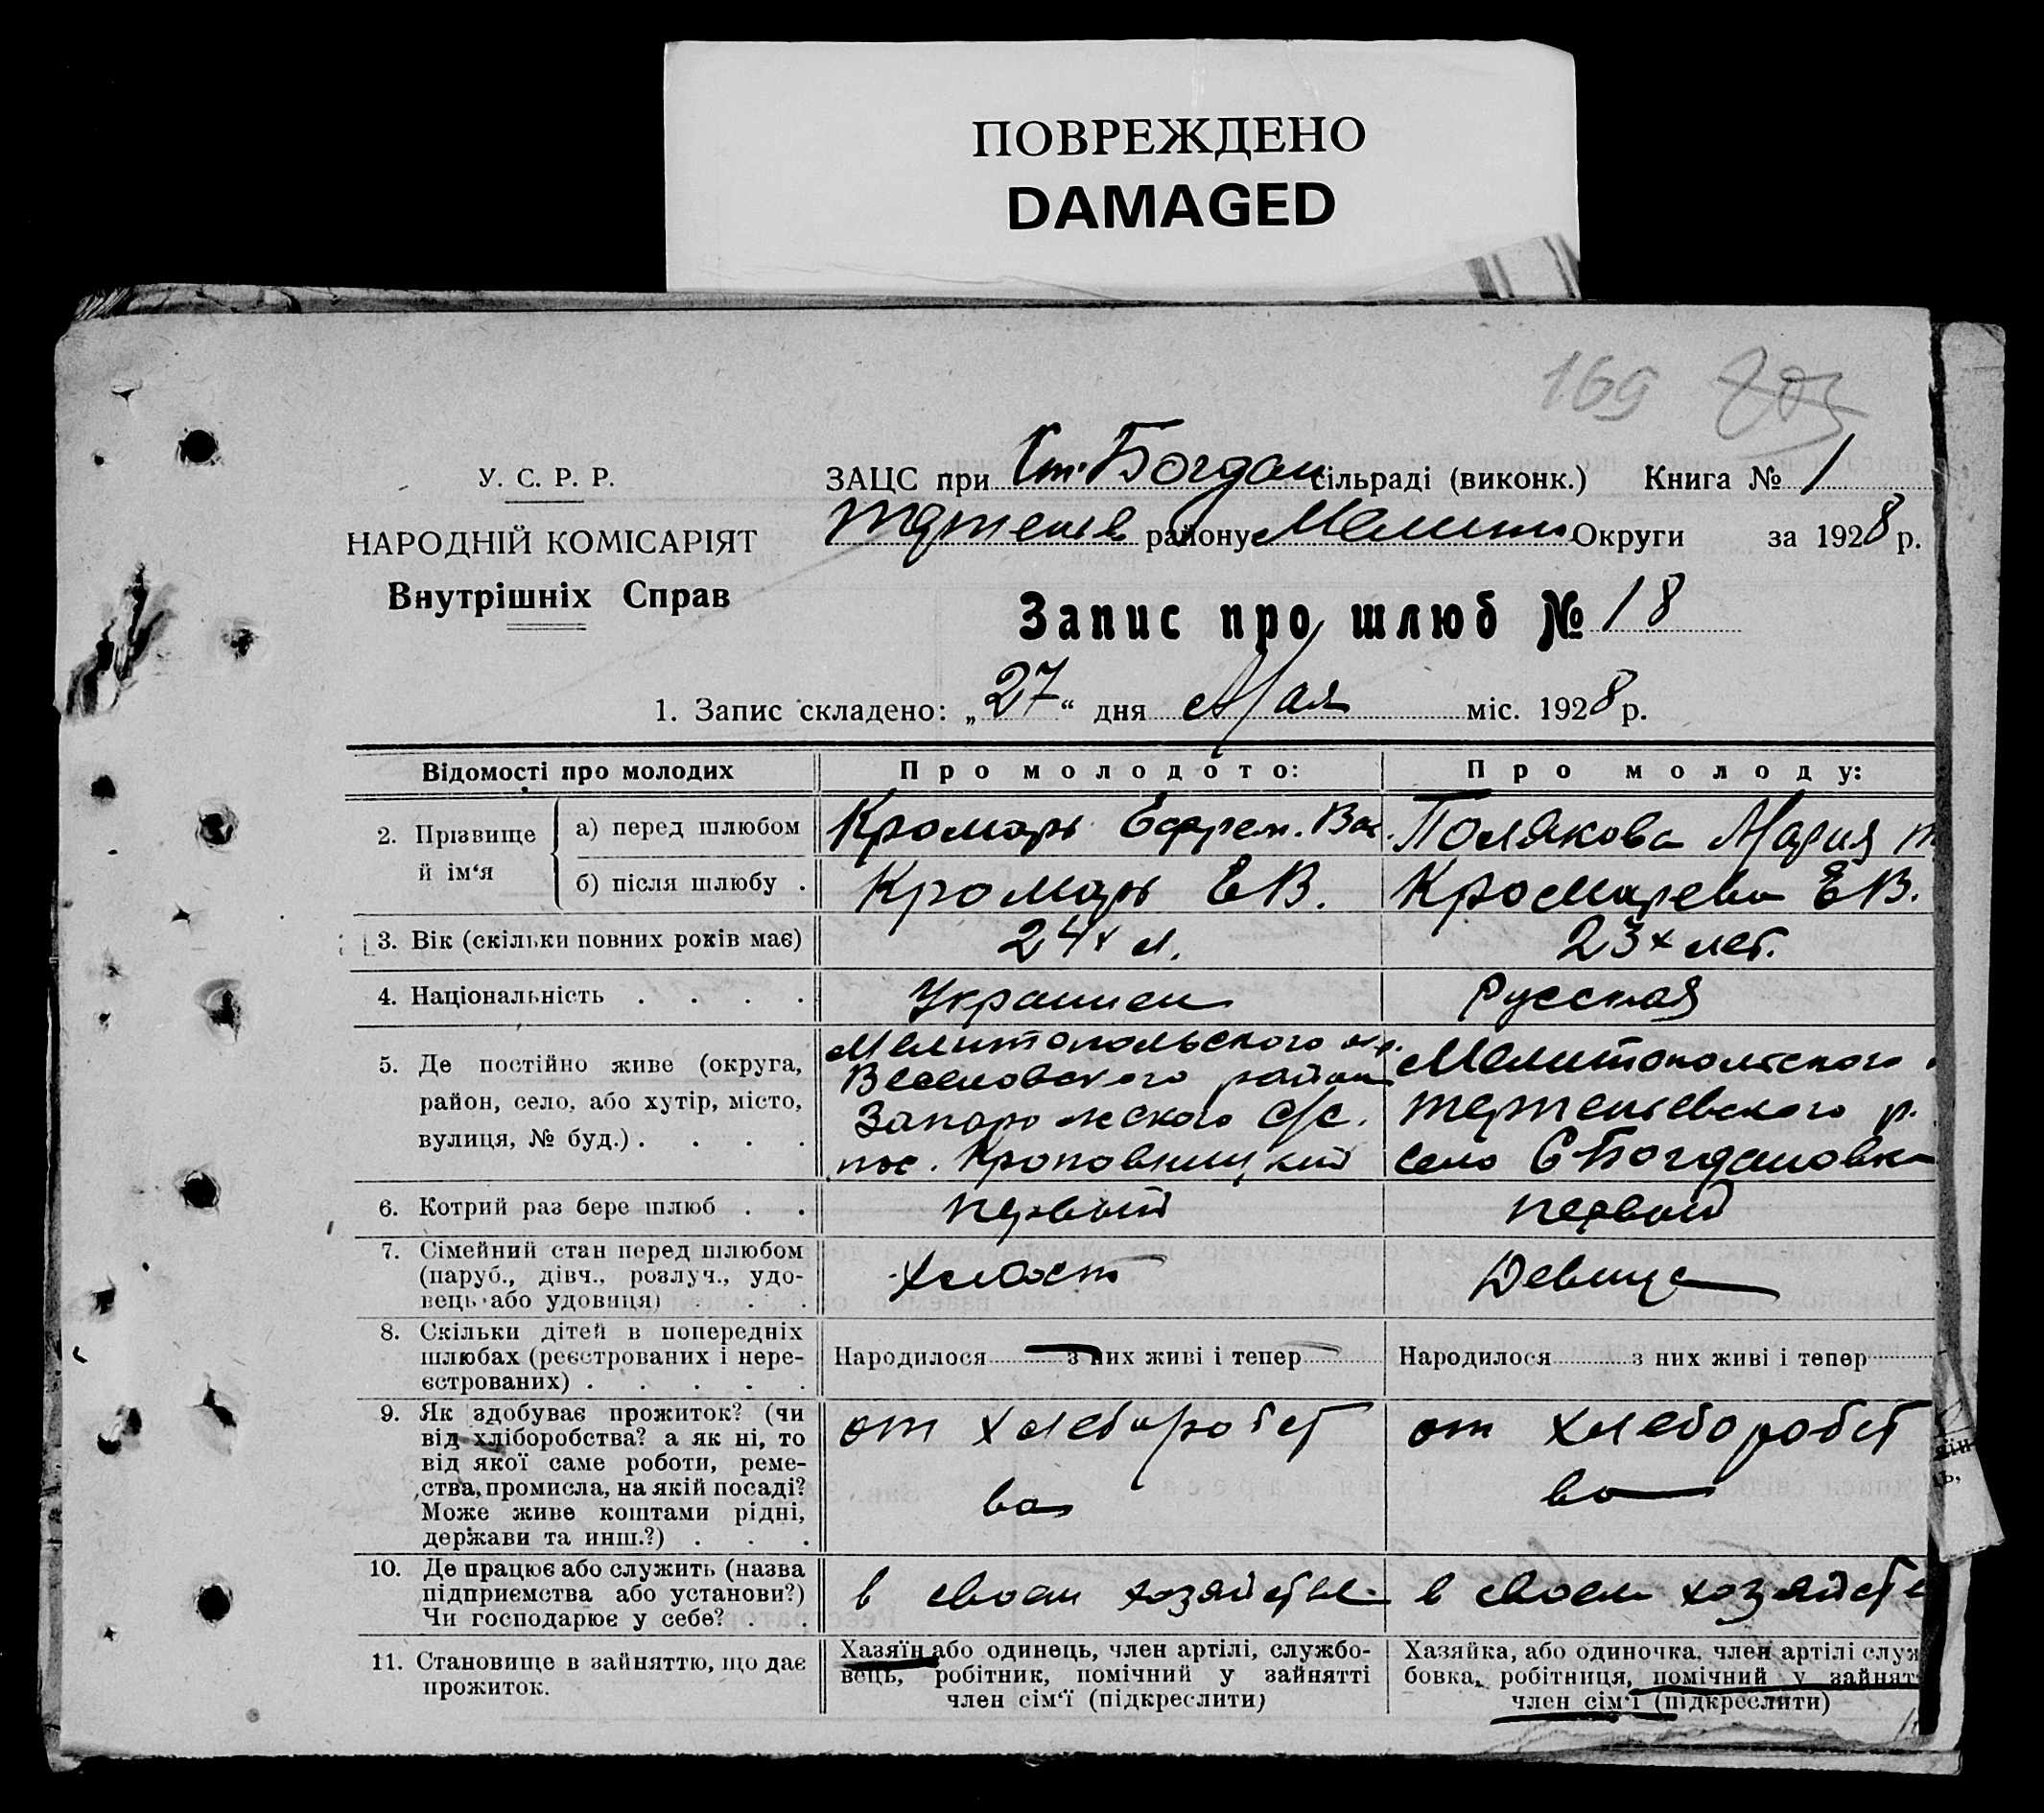 ПОВРЕЖДЕНО
DAMAGED
169 203
У. С. Р. Р.
НАРОДНІЙ КОМІСАРІЯТ
Внутрішніх Справ
ЗАЦС при Ст. Богдан сільраді (виконк.) Книга № 1
району Мелит Округи за 1928 р.
Запис про шлюб № 18
1. Запис складено: „27“ дня Мая міс. 1928 р.
Відомості про молодих
Про молодого:
Про молоду:
2. Прізвище й ім‘я
а) перед шлюбом
Кромарь Ефрем. Вас.
Полякова Мария
б) після шлюбу .
Кромарь ЕВ.
Кромарева ЕВ.
3. Вік (скільки повних років має)
24х л.
23х лет.
4. Національність . . . .
Украинец
Русская
5. Де постійно живе (округа,
район, село, або хутір, місто,
вулиця, № буд.) . . . .
Мелитопольского окр.
Веселовского района
Запорожского с/с.
пос. Кроповницкий
Мелитопольского
Терпеньевского р.
село С Богдановка
6. Котрий раз бере шлюб . .
первый
первый
7. Сімейний стан перед шлюбом
(паруб., дівч., розлуч., удо-
вець або удовиця) . . .
холост
Девица
8. Скільки дітей в попередніх
шлюбах (реєстрованих і нере-
єстрованих) . . . . .
Народилося з них живі і тепер
Народилося з них живі і тепер
9. Як здобуває прожиток? (чи
від хліборобства? а як ні, то
від якої саме роботи, реме-
ства, промисла, на якій посаді?
Може живе коштами рідні,
держави та инш.?) . . .
от хлеборобст
ва
от хлеборобст
ва
10. Де працює або служить (назва
підприємства або установи?)
Чи господарює у себе? . .
в своем хозяйстве
в своем хозяйст
11. Становище в зайняттю, що дає
прожиток.
Хазяїн або одинець, член артілі, службо-
вець, робітник, помічний у зайнятті
член сім‘ї (підкреслити)
Хазяйка, або одиночка, член артілі служ
бовка, робітниця, помічний у зайнят
член сім‘ї (підкреслити)